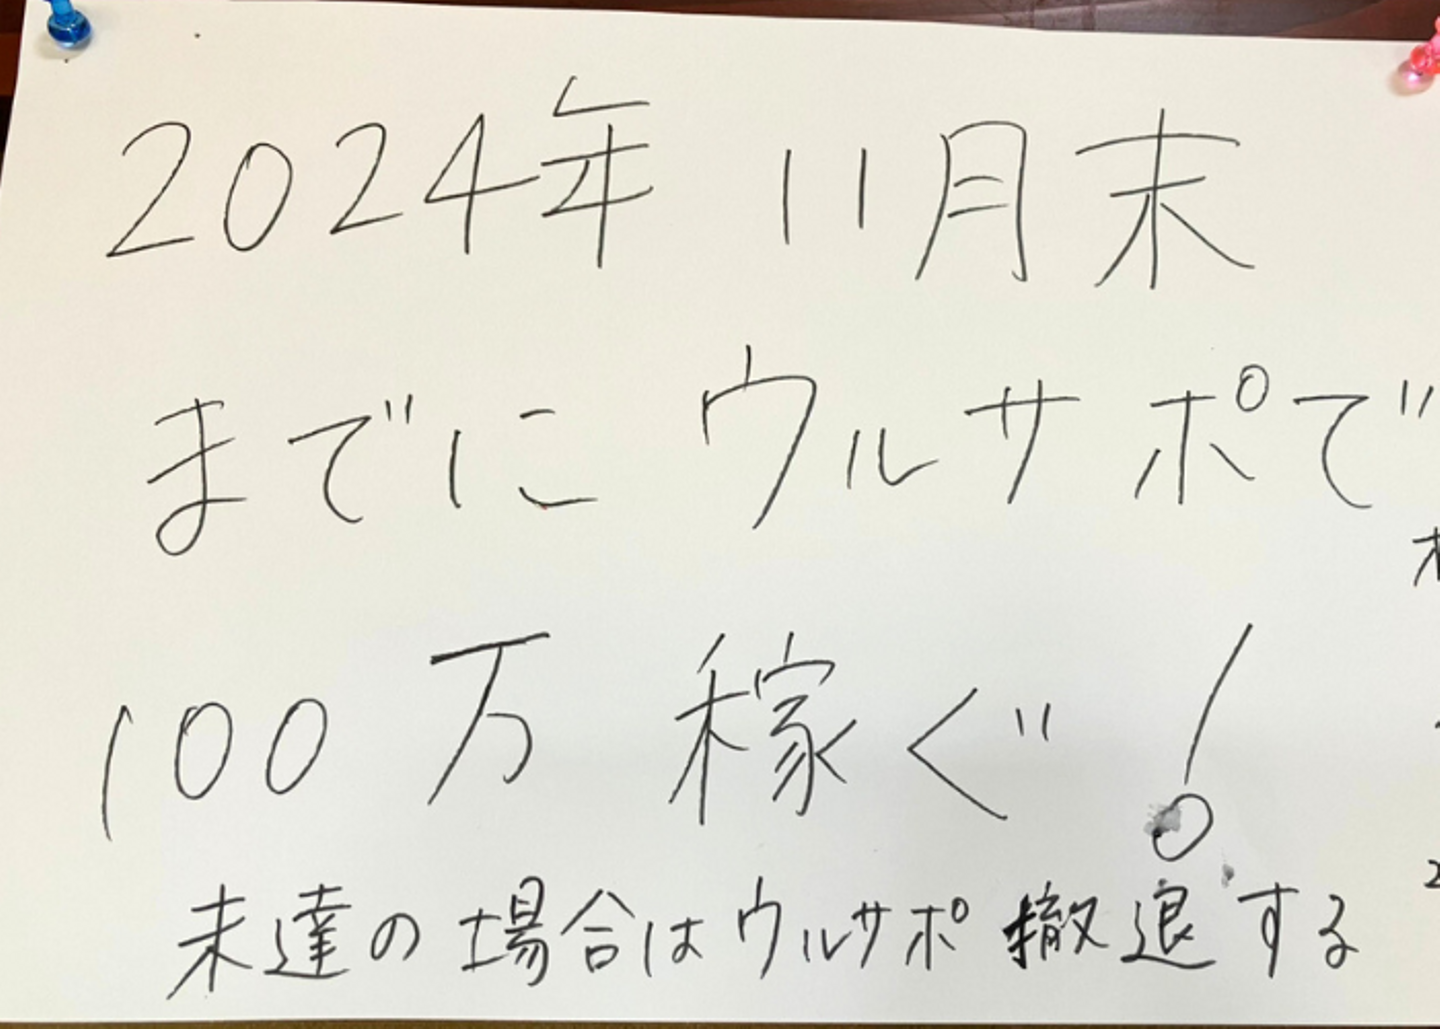 2024年 11月末
までに ウルサポで
100万 稼ぐ!
未達の場合はウルサポ撤退する